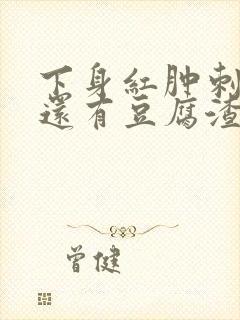 下身紅肿刺
還有豆腐渣
曾健